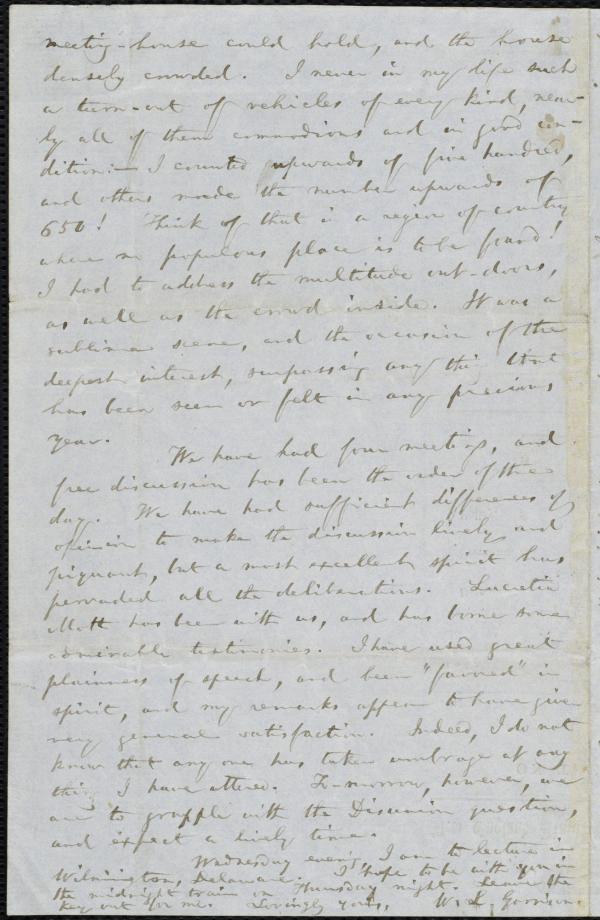 meeting-house could hold, and the house
densely crowded. I never in my life such
a turn-out of vehicles of every kind, near-
ly all of them commodious and in good con-
dition:— I counted upwards of five hundred,
and others made the number upwards of
650! Think of that in a region of country
where no populous place is to be found!
I had to address the multitude out-doors,
as well as the crowd inside. It was a
sublime scene, and the occasion of the
deepest interest, surpassing any thing that
has been seen or felt in any previous
year.
We have had four meetings, and
free discussion has been the order of the
day. We have had sufficient difference of
opinion to make the discussion lively and
piquant, but a most excellent spirit has
pervaded all the deliberations. Lucretia
Mott has been with us, and has borne some
admirable testimonies. I have used great
plainness of speech, and been "favored" in
spirit, and my remarks appear to have given
very general satisfaction. Indeed, I do not
know that any one has taken umbrage at any
thing I have uttered. To-morrow, however, we
are to grapple with the Disunion question,
and expect a lively time.
Wednesday evening I am to lecture in
Wilmington, Delaware. I hope to be with you in
the midnight train on Thursday night. Leave the
key out for me. Lovingly yours, Wm. L. Garrison.